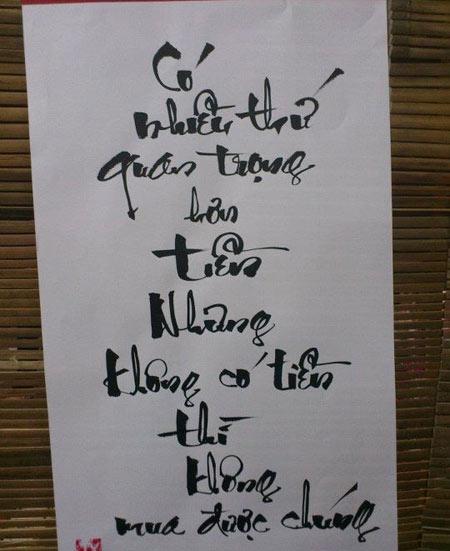 Có
nhiều thứ
quan trọng
hơn
tiền
Nhưng
không có tiền
thì
không
mua được chúng